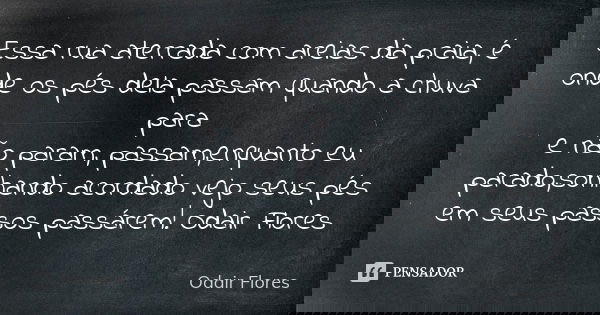 Essa rua aterrada com areias da praia, é
onde os pés dela passam quando a chuva
para
e não param, passam,enquanto eu
parado,sonhando acordado vejo seus pés
em seus passos passárem! Odair Flores
Odair Flores
PENSADOR